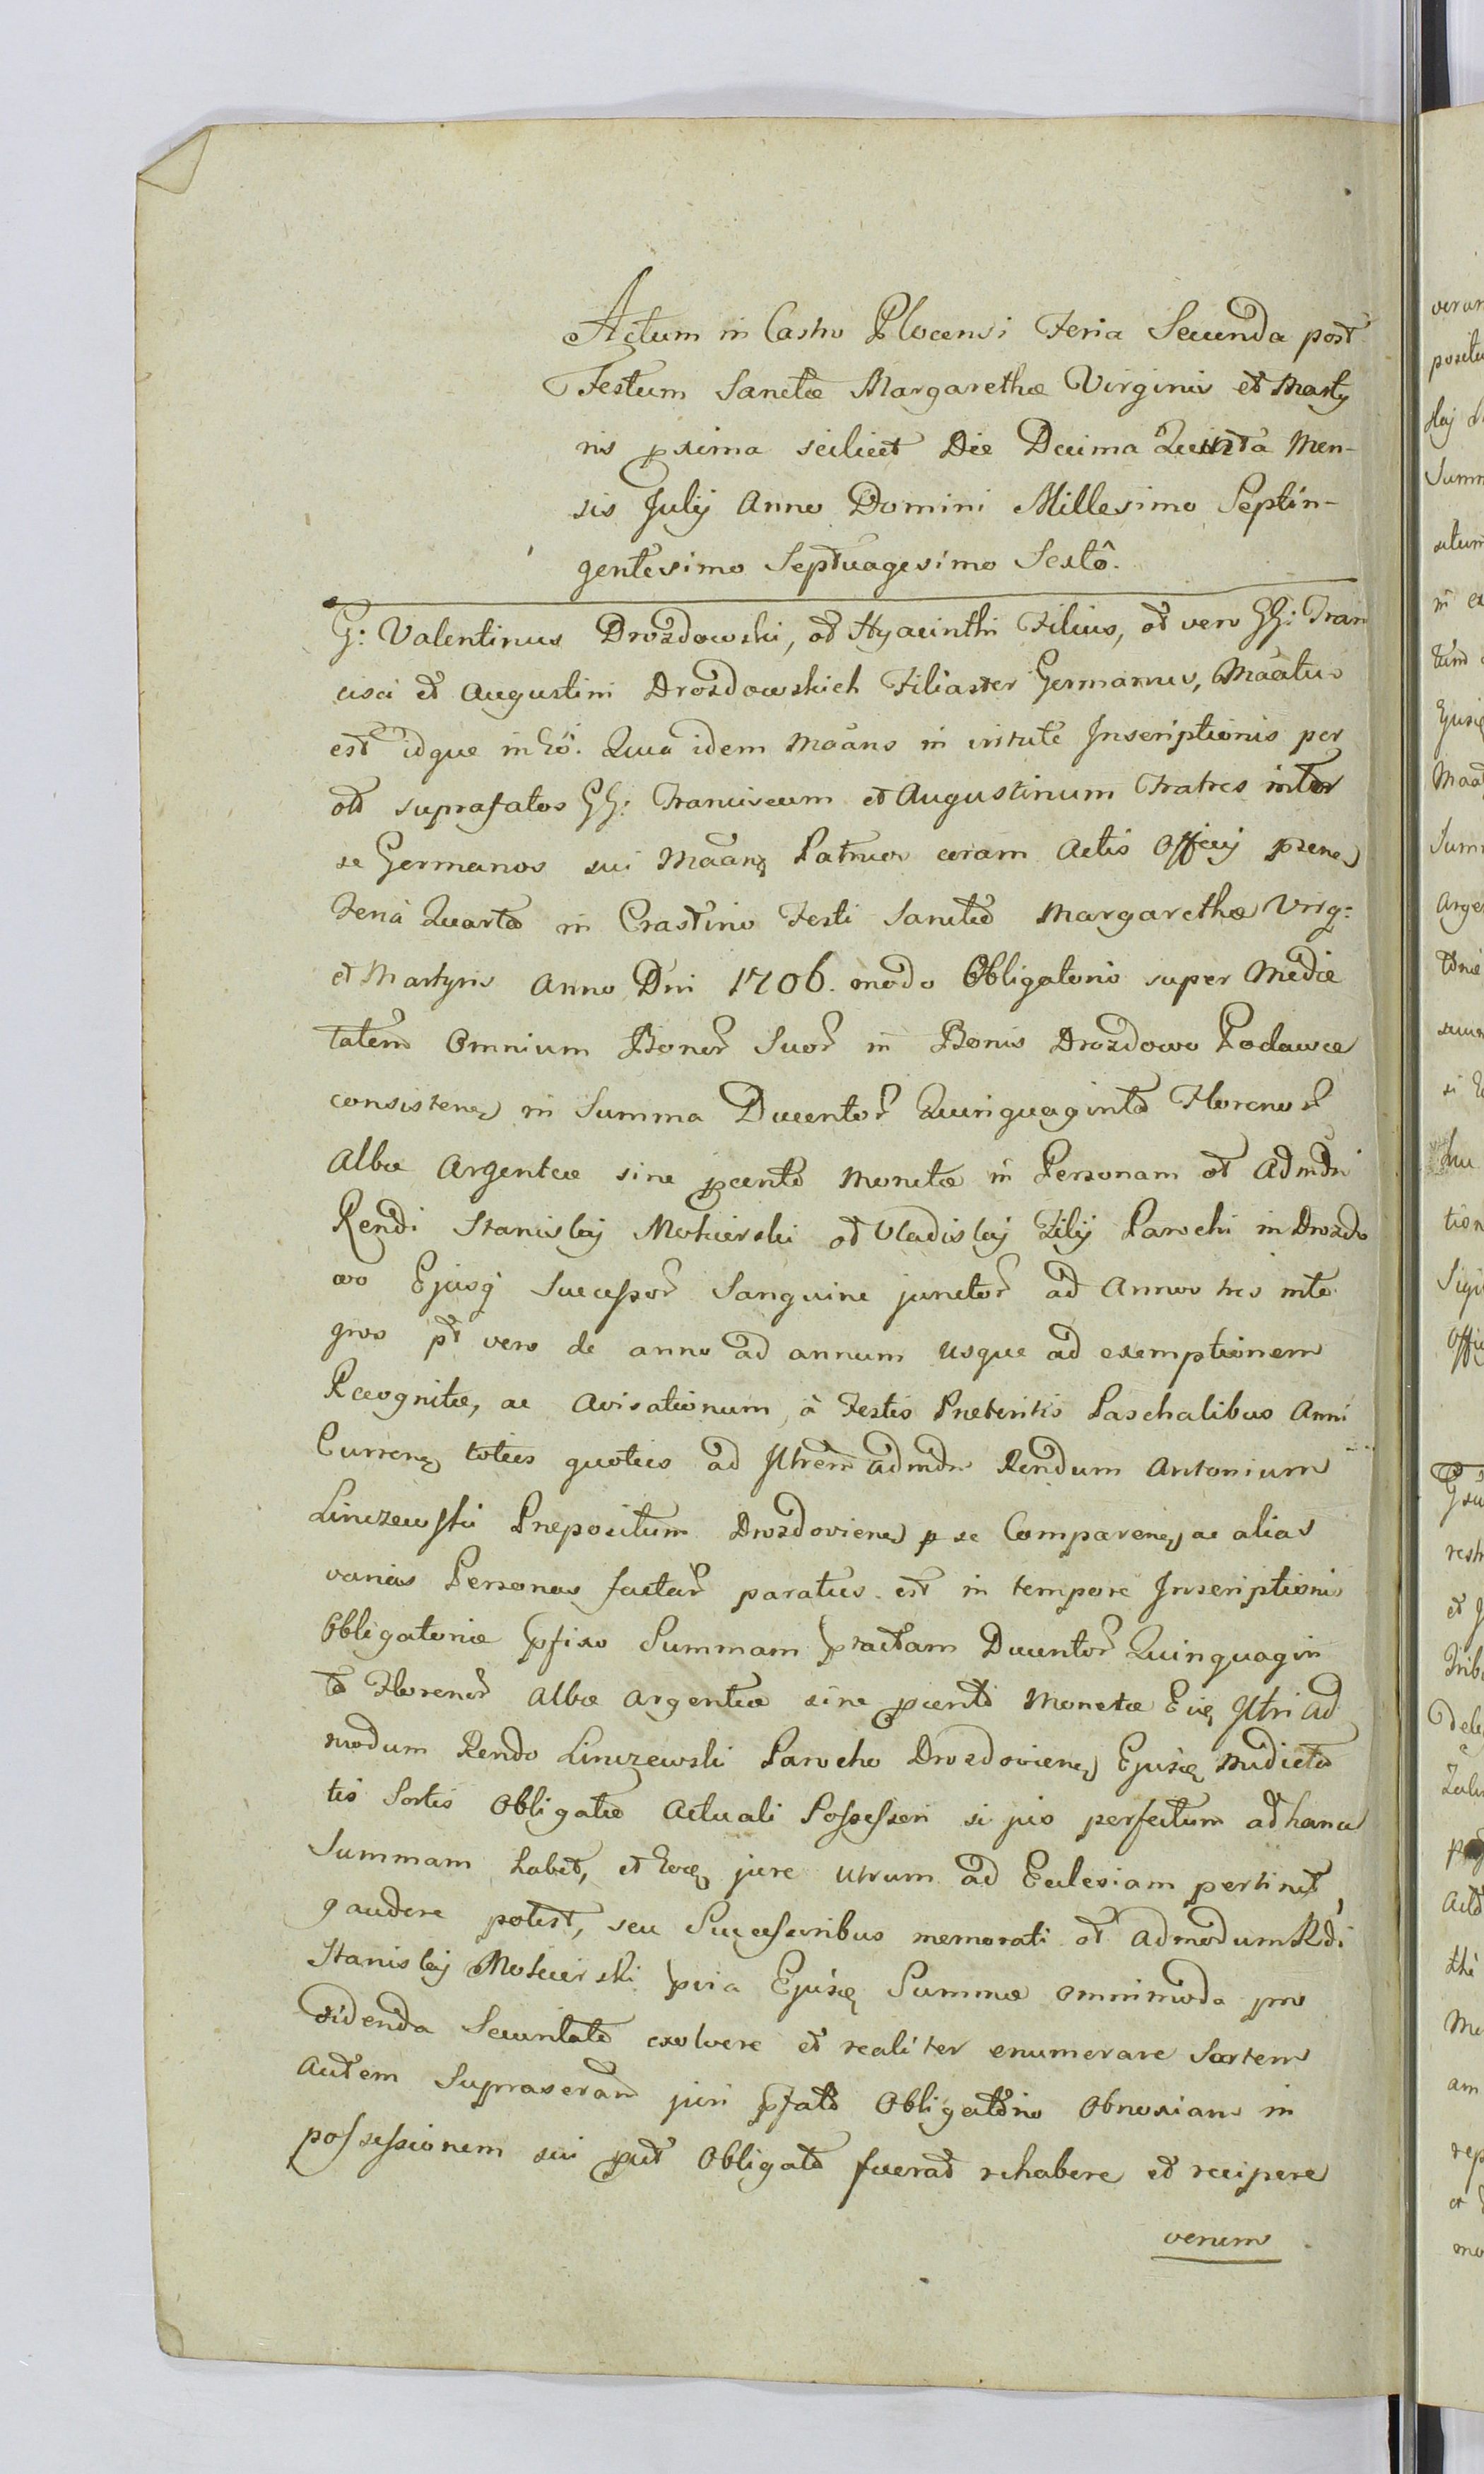 Actum in Castro Plocensi Feria Secunda post
Festum Sanctæ Margarethæ Virginis et Marty
ris pxima scilicet Die Decima Quinta Men-
sis Julij Anno Domini Millesimo Septin-
gentesimo Septuagesimo Sextô.
G: Valentinus Drozdowski, ol Hyacinthi Filius, ol vero GG: Fran
cisci et Augustini Drozdowskich Filiaster Germanus, Maatus
est idque in Eo. Quia idem Maans in virtute Inscriptionis per
ol suprafatos GG: Franciscum et Augustinum Fratres inter
se Germanos sui Maans Patruos coram Actis Officij psenes
Feriâ Quarta in Crastino Festi Sanctæ Margarethæ Virg:
et Martyris Anno Dni 1706. modo Obligatorio super Medie
tatem Omnium Bonor Suor in Bonis Drozdowo Podawce
consisten in Summa Ducentor Quinquaginta Florenor
Albæ Argenteæ sine pcento Monetæ in Personam ol Admdn
Rendi Stanislaj Mokierski ol Vladislaj Filij Parochi in Drozdo
wo Ejusq Successor Sanguine junctor ad Annos tres inte
gros pt vero de anno ad annum usque ad exemptionem
Recognitæ, ac Avisationum, à Festis Preteritis Paschalibus Anni
Curren toties quoties ad Jllrem admdn Rendum Antonium
Linczewski Prepositum Drozdovien p se Comparen ac alias
varias Personas factar paratus est in tempore Inscriptionis
Obligatoriæ pfixo Summam praetam Ducentor Quinquagin
ta Florenor Albæ Argenteæ sine pcento Monetæ Eiq Jllri Ad
modum Rendo Linczewski Parocho Drozdovien Ejusq Medieta
tis Sortis Obligatæ Actuali Possessori si jus perfectum ad hanc
Summam habet, et Eoq jure utrum ad Ecclesiam pertinet,
gaudere potest, seu Successoribus memorati ol Admodum Rdi
Stanislaj Mokierski pvia Ejusq Summæ omnimoda pro
videnda Securitate exolvere et realiter enumerare Sortem
autem Supraseram juri pfato Obligatorio Obnoxiam in
possessionem sui put Obligata fuerat rehabere et recipere
verum